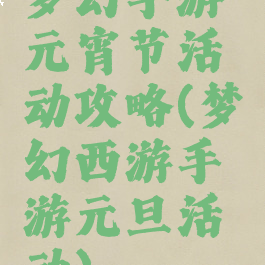 梦幻手游
元宵节活
动攻略(梦
幻西游手
游元旦活
动)